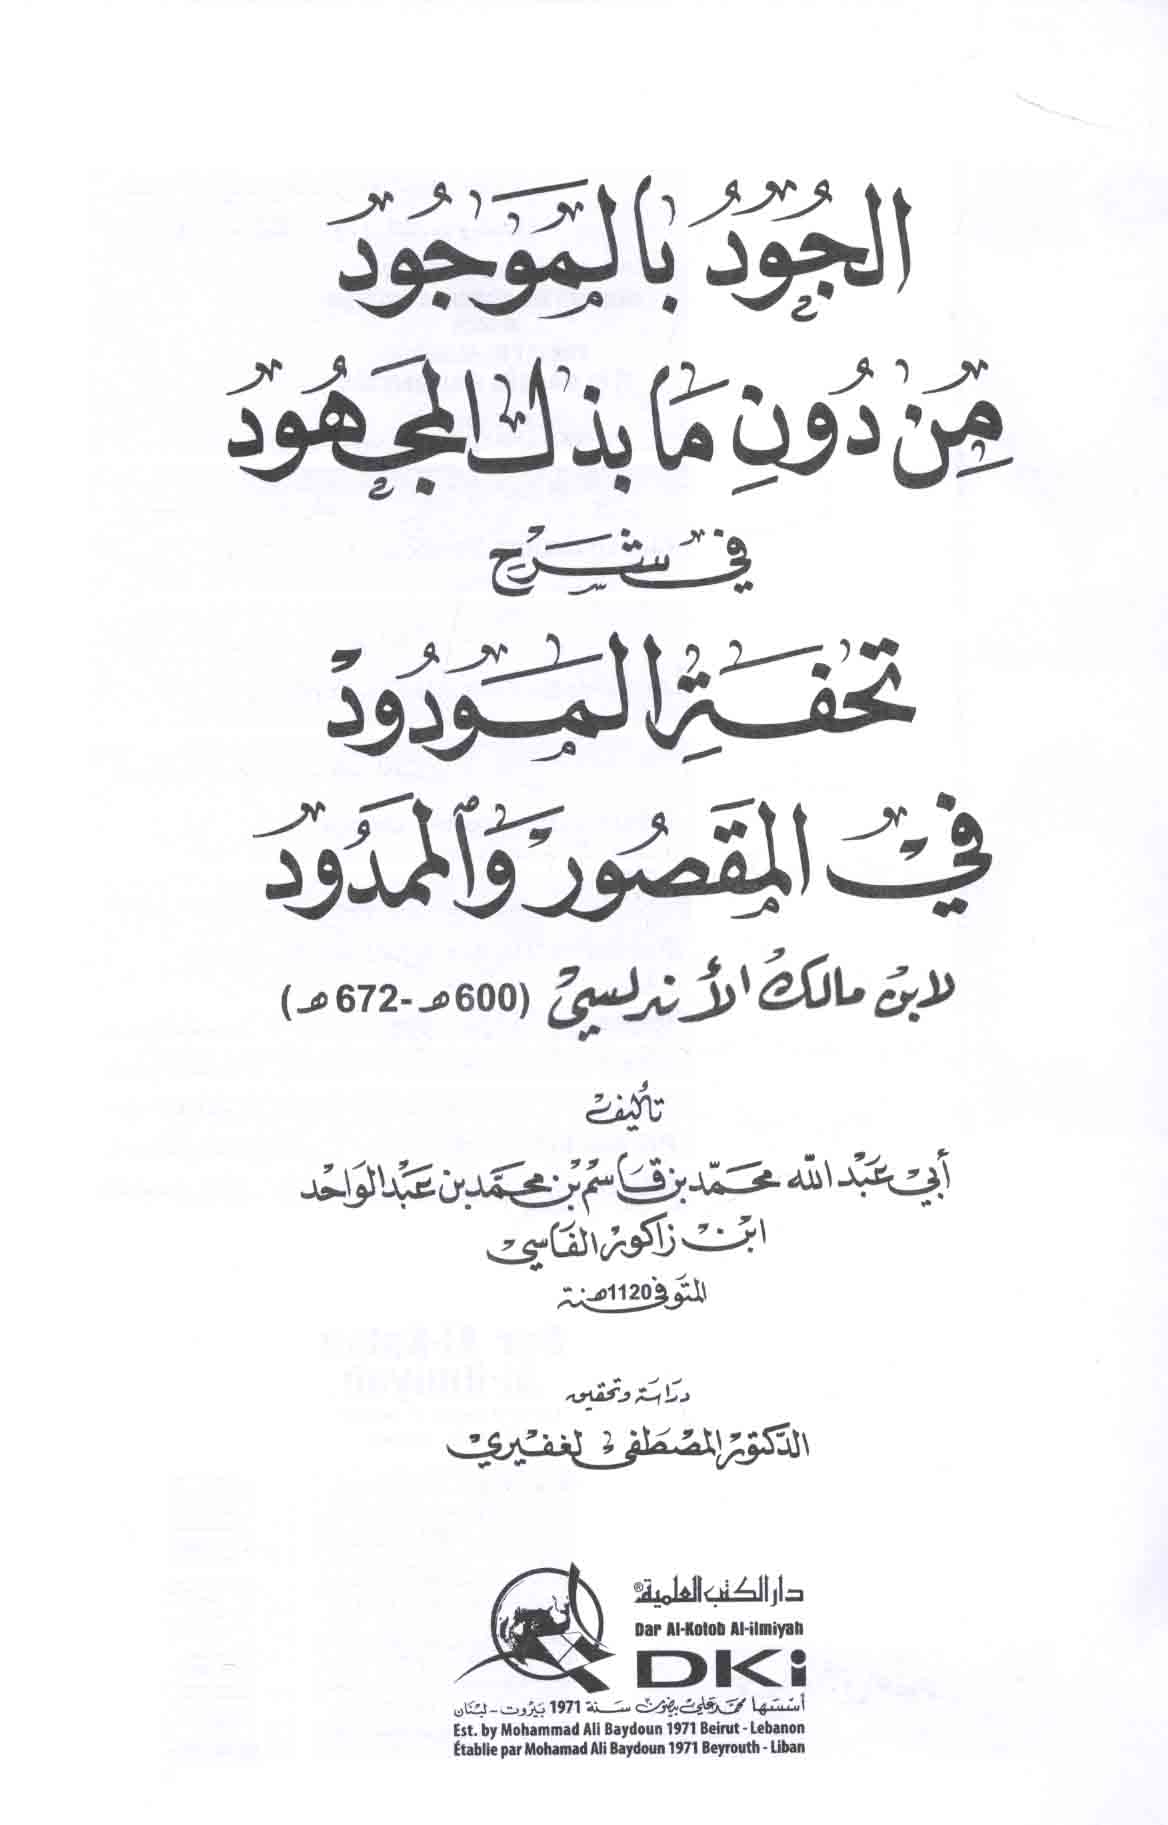 الجُودُ بالمَوجُود
مِن دُونِ مَا بذل المجَهُود
في شَرح
تحفَةِ المَودُود
في المَقصُور وَالممدُود
لابن مالك الأندلسي (600هـ-672هـ)
تأليف
أبي عَبْد الله محمَّد بن قَاسم بْن محمَّد بن عَبْد الوَاحْد
ابن زاكور الفَاسي
المتَوفى سنة 1120هـ
دراسة وتحقيق
الدكتور المصْطَفى لغفيري
دار الكتب العلمية®
Dar Al-Kotob Al-ilmiyah
DKi
أسسَها محمد علي بيضون سَنة 1971 بَيْروت - لبْنَان
Est. by Mohammad Ali Baydoun 1971 Beirut - Lebanon
Établie par Mohamad Ali Baydoun 1971 Beyrouth - Liban